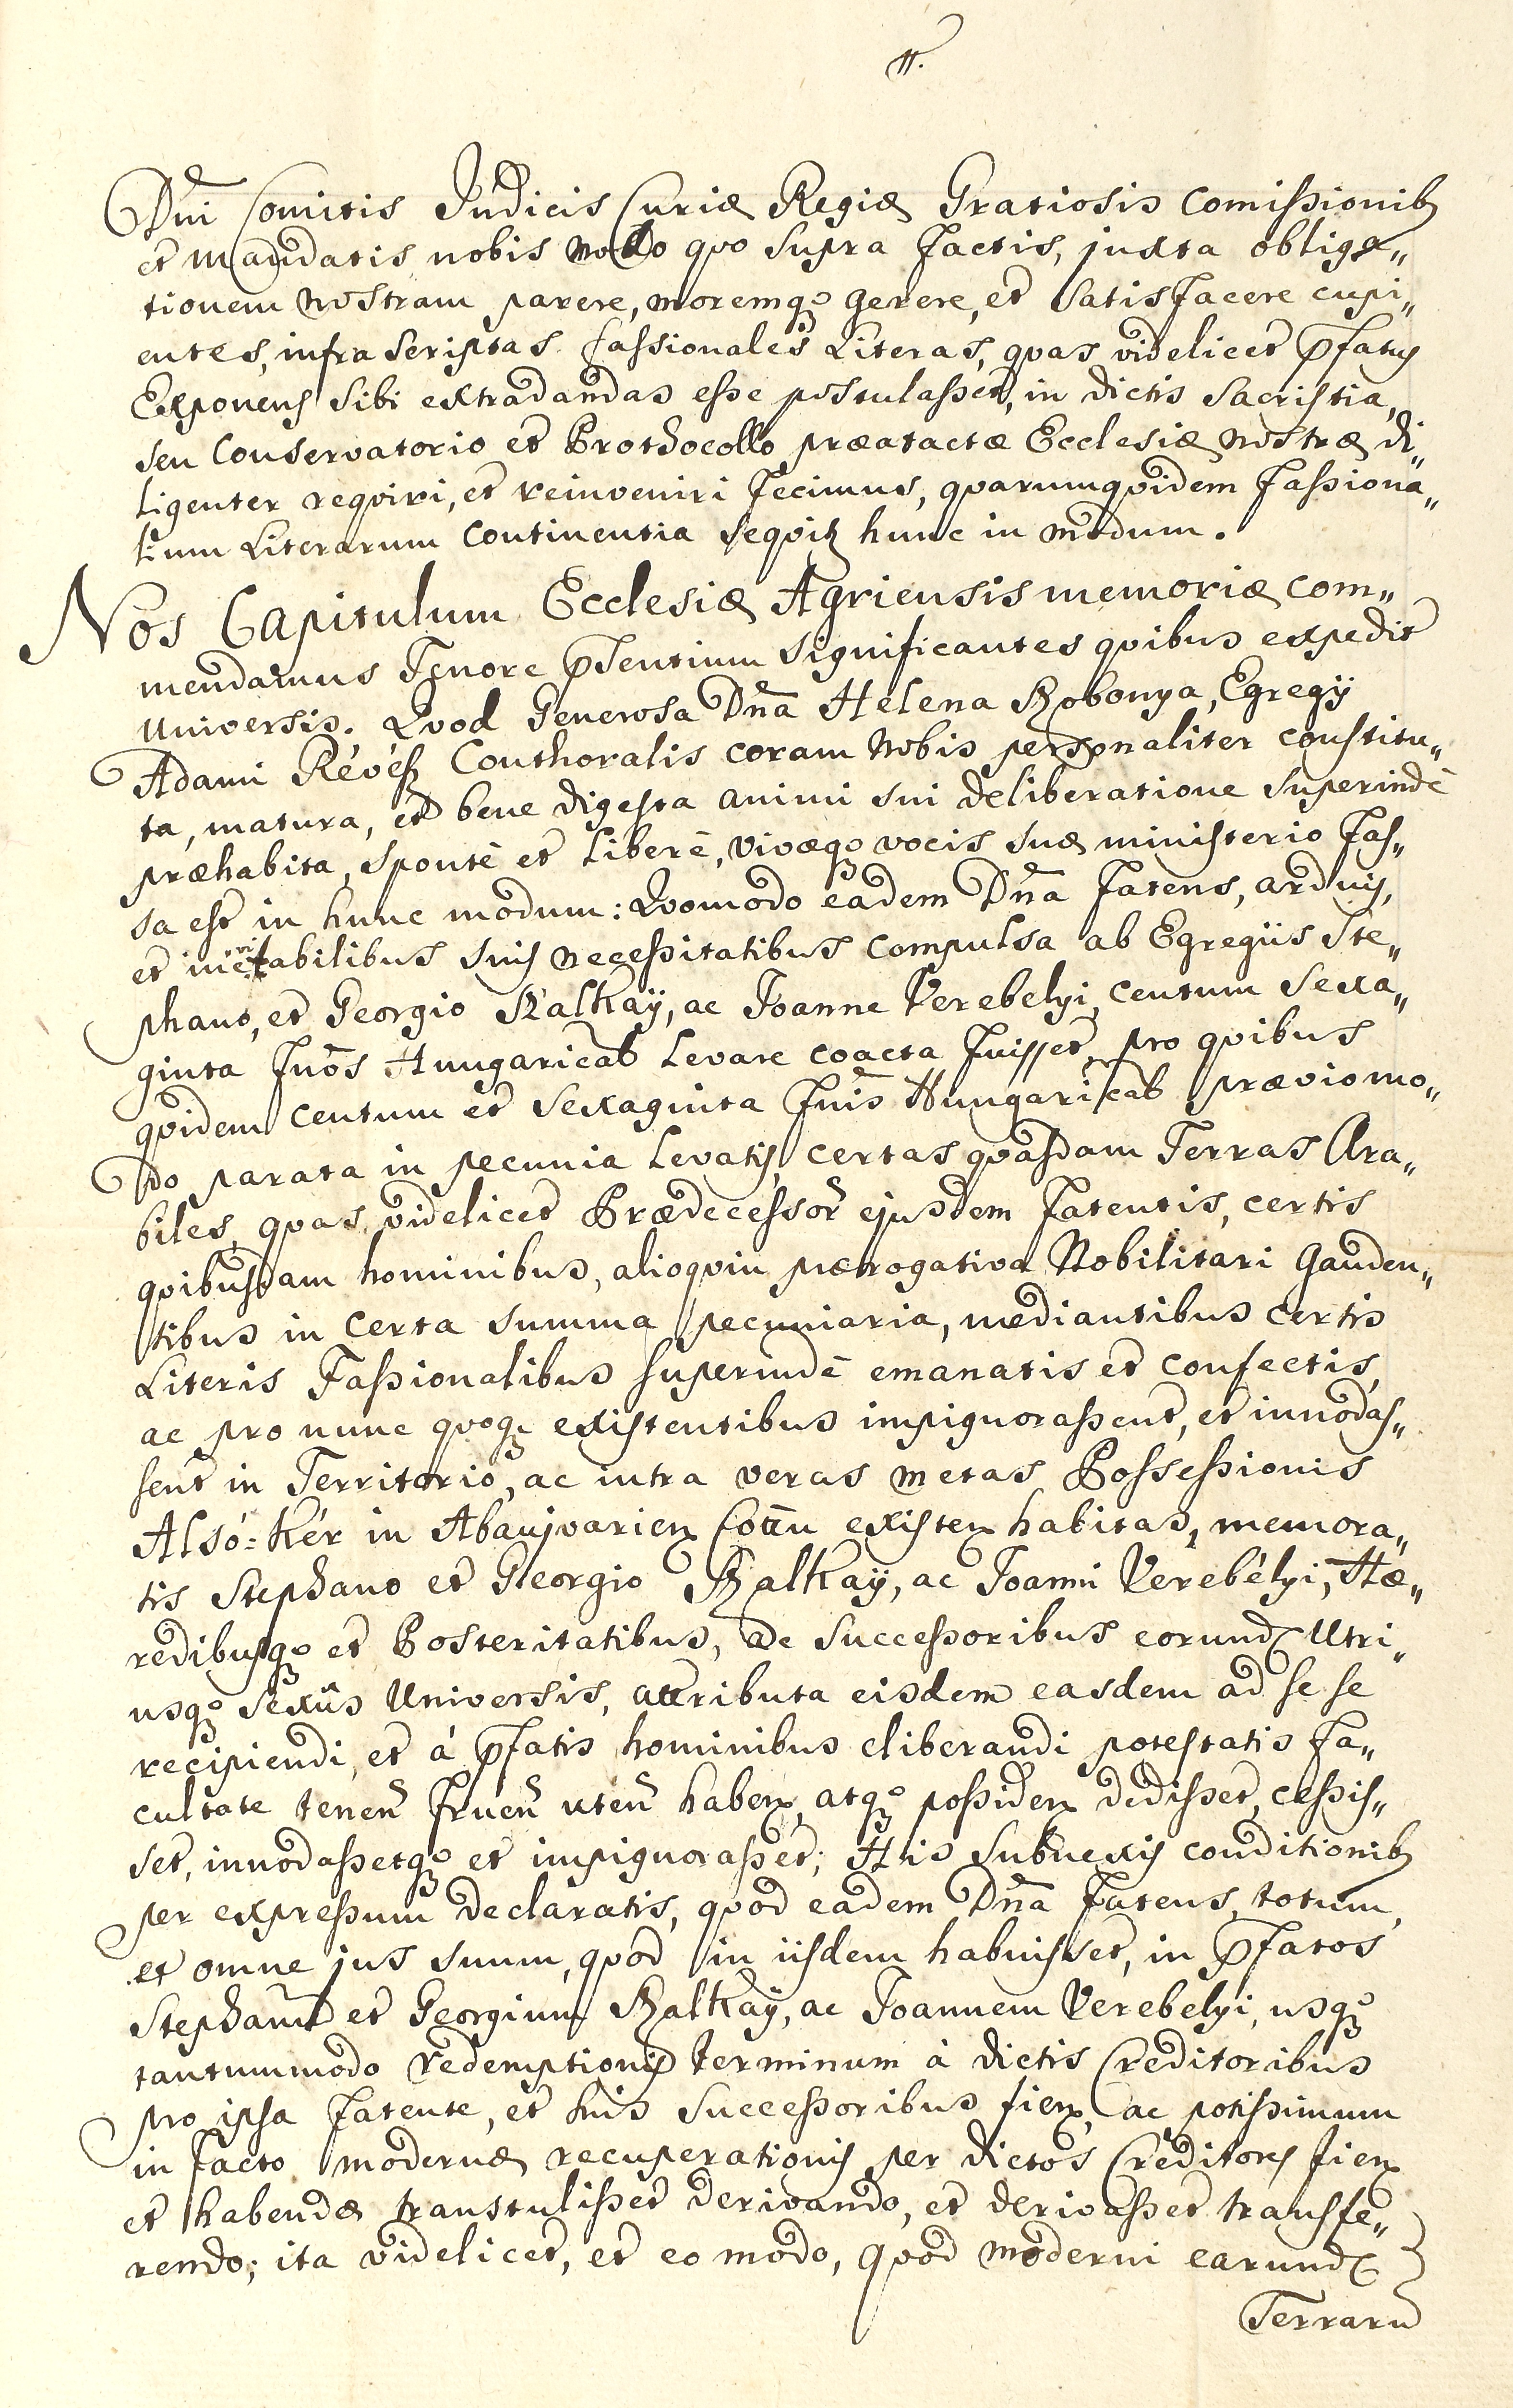 11.
Dni Comitis Judicis Curiæ Regiæ Gratiosis Comißionib9
et Mandatis nobis modo quo supra factis, juxta obliga„
tionem nostram parere, moremq3 gerere, et satisfacere cupi„
entes, infra scriptas fassionales Literas, qvas videlicet pfatus
Exponens sibi extradandas eße postulaßet, in dictis Sacristia,
seu Conservatorio et Prothocollo præatactæ Ecclesiæ nostræ di„
ligenter reqviri, et reinveniri fecimus, qvarumqvidem faßiona„
lium Literarum continentia seqvitr hunc in modum.
Nos Capitulum Ecclesiæ Agriensis memoriæ com„
mendamus Tenore pñsentium significantes qvibus expedit
universis. Qvod Generosa Dña Helena Szobonya, Egregÿ
Adami Révész Conthoralis coram nobis personaliter constitu„
ta, matura, et bene digesta animi sui deliberatione superinde
præhabita, sponte et libere, vivæq3 vocis suæ ministerio fas„
sa est in hunc modum: Qvomodo eadem Dña Fatens, arduis,
et inevitabilibus suis neceßitatibus compulsa ab Egregiis Ste„
phano, et Georgio Szalkaÿ, ac Joanne Verebelyi, centum sexa„
ginta fnōs Hungaricales levare coacta fuisset, pro qvibus
qvidem centum et sexaginta fnis Hungaricalibus prævio mo„
do parata in pecunia levatis, certas qvasdam Terras Ara„
biles, qvas videlicet Prædeceßor̃ ejusdem Fatentis, certis
qvibusdam hominibus, alioqvin prærogativa Nobilitari gauden„
tibus in certa summa pecuniaria, mediantibus certis
Literis Faßionalibus superinde emanatis et confectis,
ac pro nunc qvoq3 existentibus impignoraßent, et innodas„
sent in Territorio, ac intra veras metas Poßeßionis
Alsó=Kér in Abaujvarien Cottu existen habitas, memora„
tis Stephano et Georgio Szalkaÿ, ac Joanni Verebélyi, Hæ„
redibusq3 et Posteritatibus, ac Succeßoribus eorund Utri„
usq3 sexûs Universis, attributa eisdem easdem ad se se
recipiendi, et á pfatis hominibus eliberandi potestatis fa„
cultate teneñ frueñ uteñ haben, atq3 poßiden dedißet, ceßis„
set, innodaßetq3 et impignoraßet; His subnexis conditionib9
per expreßum declaratis, qvod eadem Dña Fatens, totum,
et omne jus suum, qvod in iisdem habuisset, in pfatos
Stephanū et Georgium Szalkaÿ, ac Joannem Verebelyi, usq3
tantummodo redemptionis terminum à dictis Creditoribus
pro ipsa Fatente, et suis Succeßoribus fien, ac potißimum
in facto modernæ recuperationis per dictos Creditores fien
et habendæ transtulißet derivando, et derivaßet transfe„
rendo; ita videlicet, et eo modo, qvod moderni earund
Terrarū